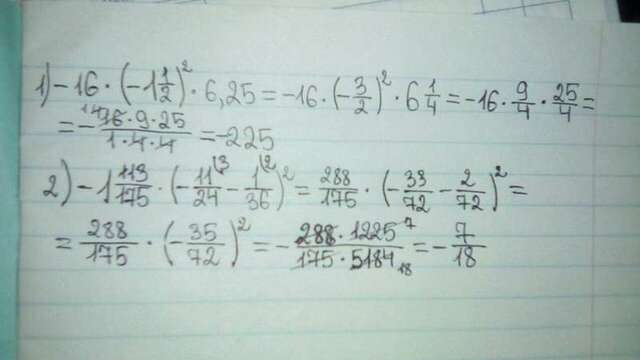 1) -16 · (-1 1/2)² · 6,25 = -16 · (-3/2)² · 6 1/4 = -16 · 9/4 · 25/4 =
= - 16·9·25 / 1·4·4 = -225
2) -1 113/175 · (-11/24 \3 - 1/36 \2)² = 288/175 · (-33/72 - 2/72)² =
= 288/175 · (-35/72)² = - 288·1225 7 / 175·5184 18 = - 7/18